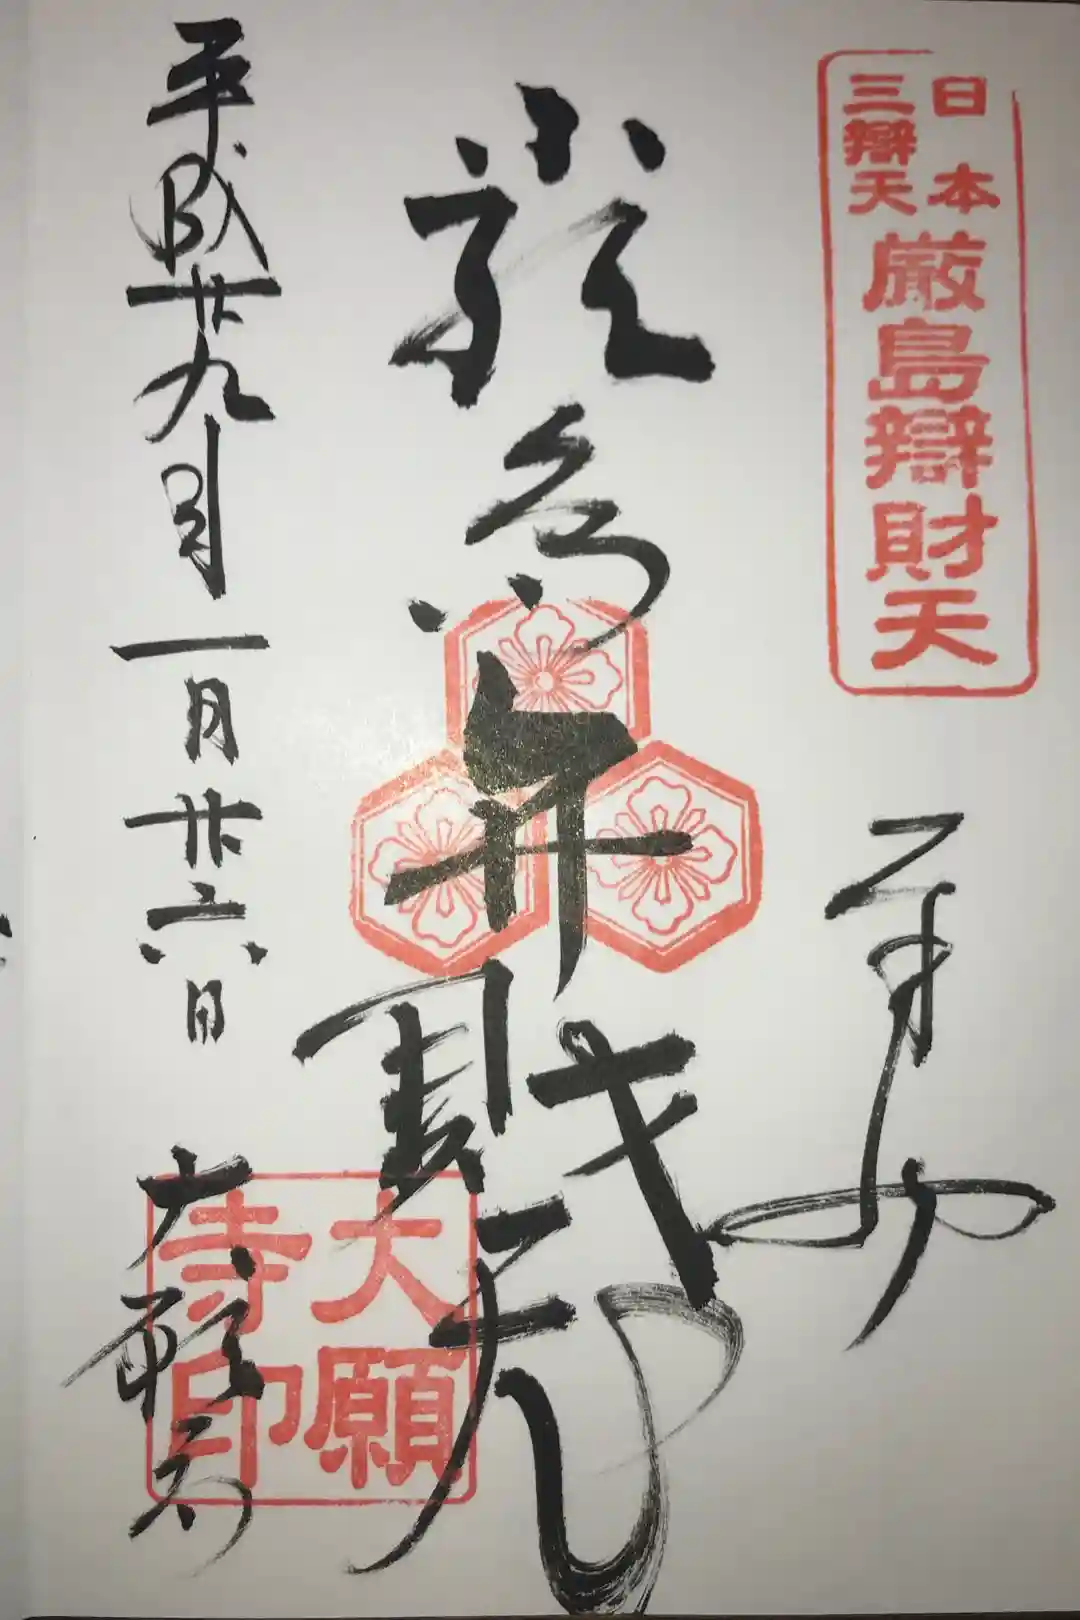 日本
三辯天
厳島辯財天
奉拝
厳島弁財天
平成廿九年
一月廿六日
大願寺
大願
寺印